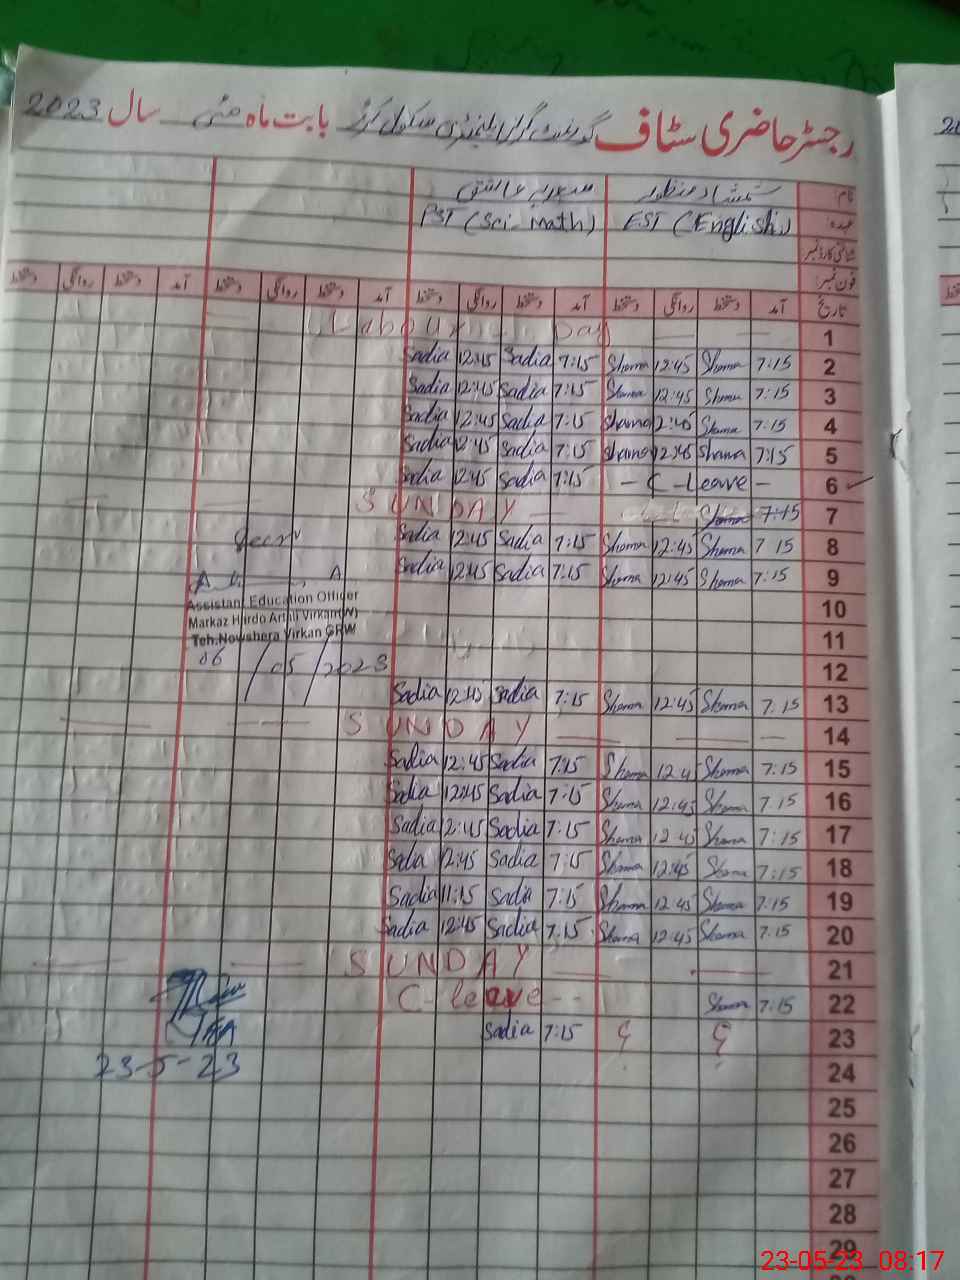 رجسٹر حاضری سٹاف گورنمنٹ گرلز ایلیمنٹری سکول بابت ماہ مئی سال 2023
نام:
عہدہ: EST (English) PST (Sci-Math)
شناختی کارڈ نمبر
فون نمبر:
تاریخ آمد دستخط روانگی دستخط آمد دستخط روانگی دستخط آمد دستخط روانگی دستخط آمد دستخط روانگی دستخط
Labour Day 1
Sadia 12:45 Sadia 7:15 Shama 12:45 Shama 7:15 2
Sadia 12:45 Sadia 7:15 Shama 12:45 Shama 7:15 3
Sadia 12:45 Sadia 7:15 Shama 12:45 Shama 7:15 4
Sadia 12:45 Sadia 7:15 Shama 12:45 Shama 7:15 5
Sadia 12:45 Sadia 7:15 - C-Leave - 6
SUNDAY Shama 7:15 7
Sadia 12:45 Sadia 7:15 Shama 12:45 Shama 7 15 8
Sadia 12:45 Sadia 7:15 Shama 12:45 Shama 7:15 9
Assistant Education Officer
Markaz Hardo Artali Virkan(W)
Teh.Nowshera Virkan GRW
06/05/2023
10
11
12
Sadia 12:45 Sadia 7:15 Shama 12:45 Shama 7.15 13
SUNDAY 14
Sadia 12:45 Sadia 7:15 Shama 12:45 Shama 7:15 15
Sadia 12:45 Sadia 7:15 Shama 12:45 Shama 7.15 16
Sadia 12:45 Sadia 7:15 Shama 12:45 Shama 7:15 17
Sadia 12:45 Sadia 7:15 Shama 12:45 Shama 7:15 18
Sadia 11:15 Sadia 7:15 Shama 12:45 Shama 7:15 19
Sadia 12:45 Sadia 7:15 Shama 12:45 Shama 7:15 20
SUNDAY 21
C-leave -- Shama 7:15 22
Sadia 7:15 23
23-5-23
24
25
26
27
28
29
23-05-23 08:17